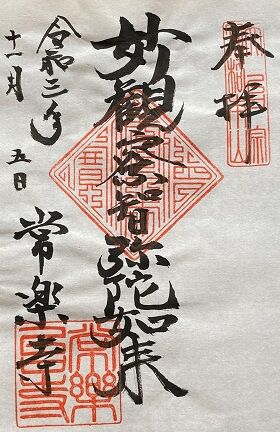 奉拝
妙観察智弥陀如来
常楽寺
令和三年
十一月 五日